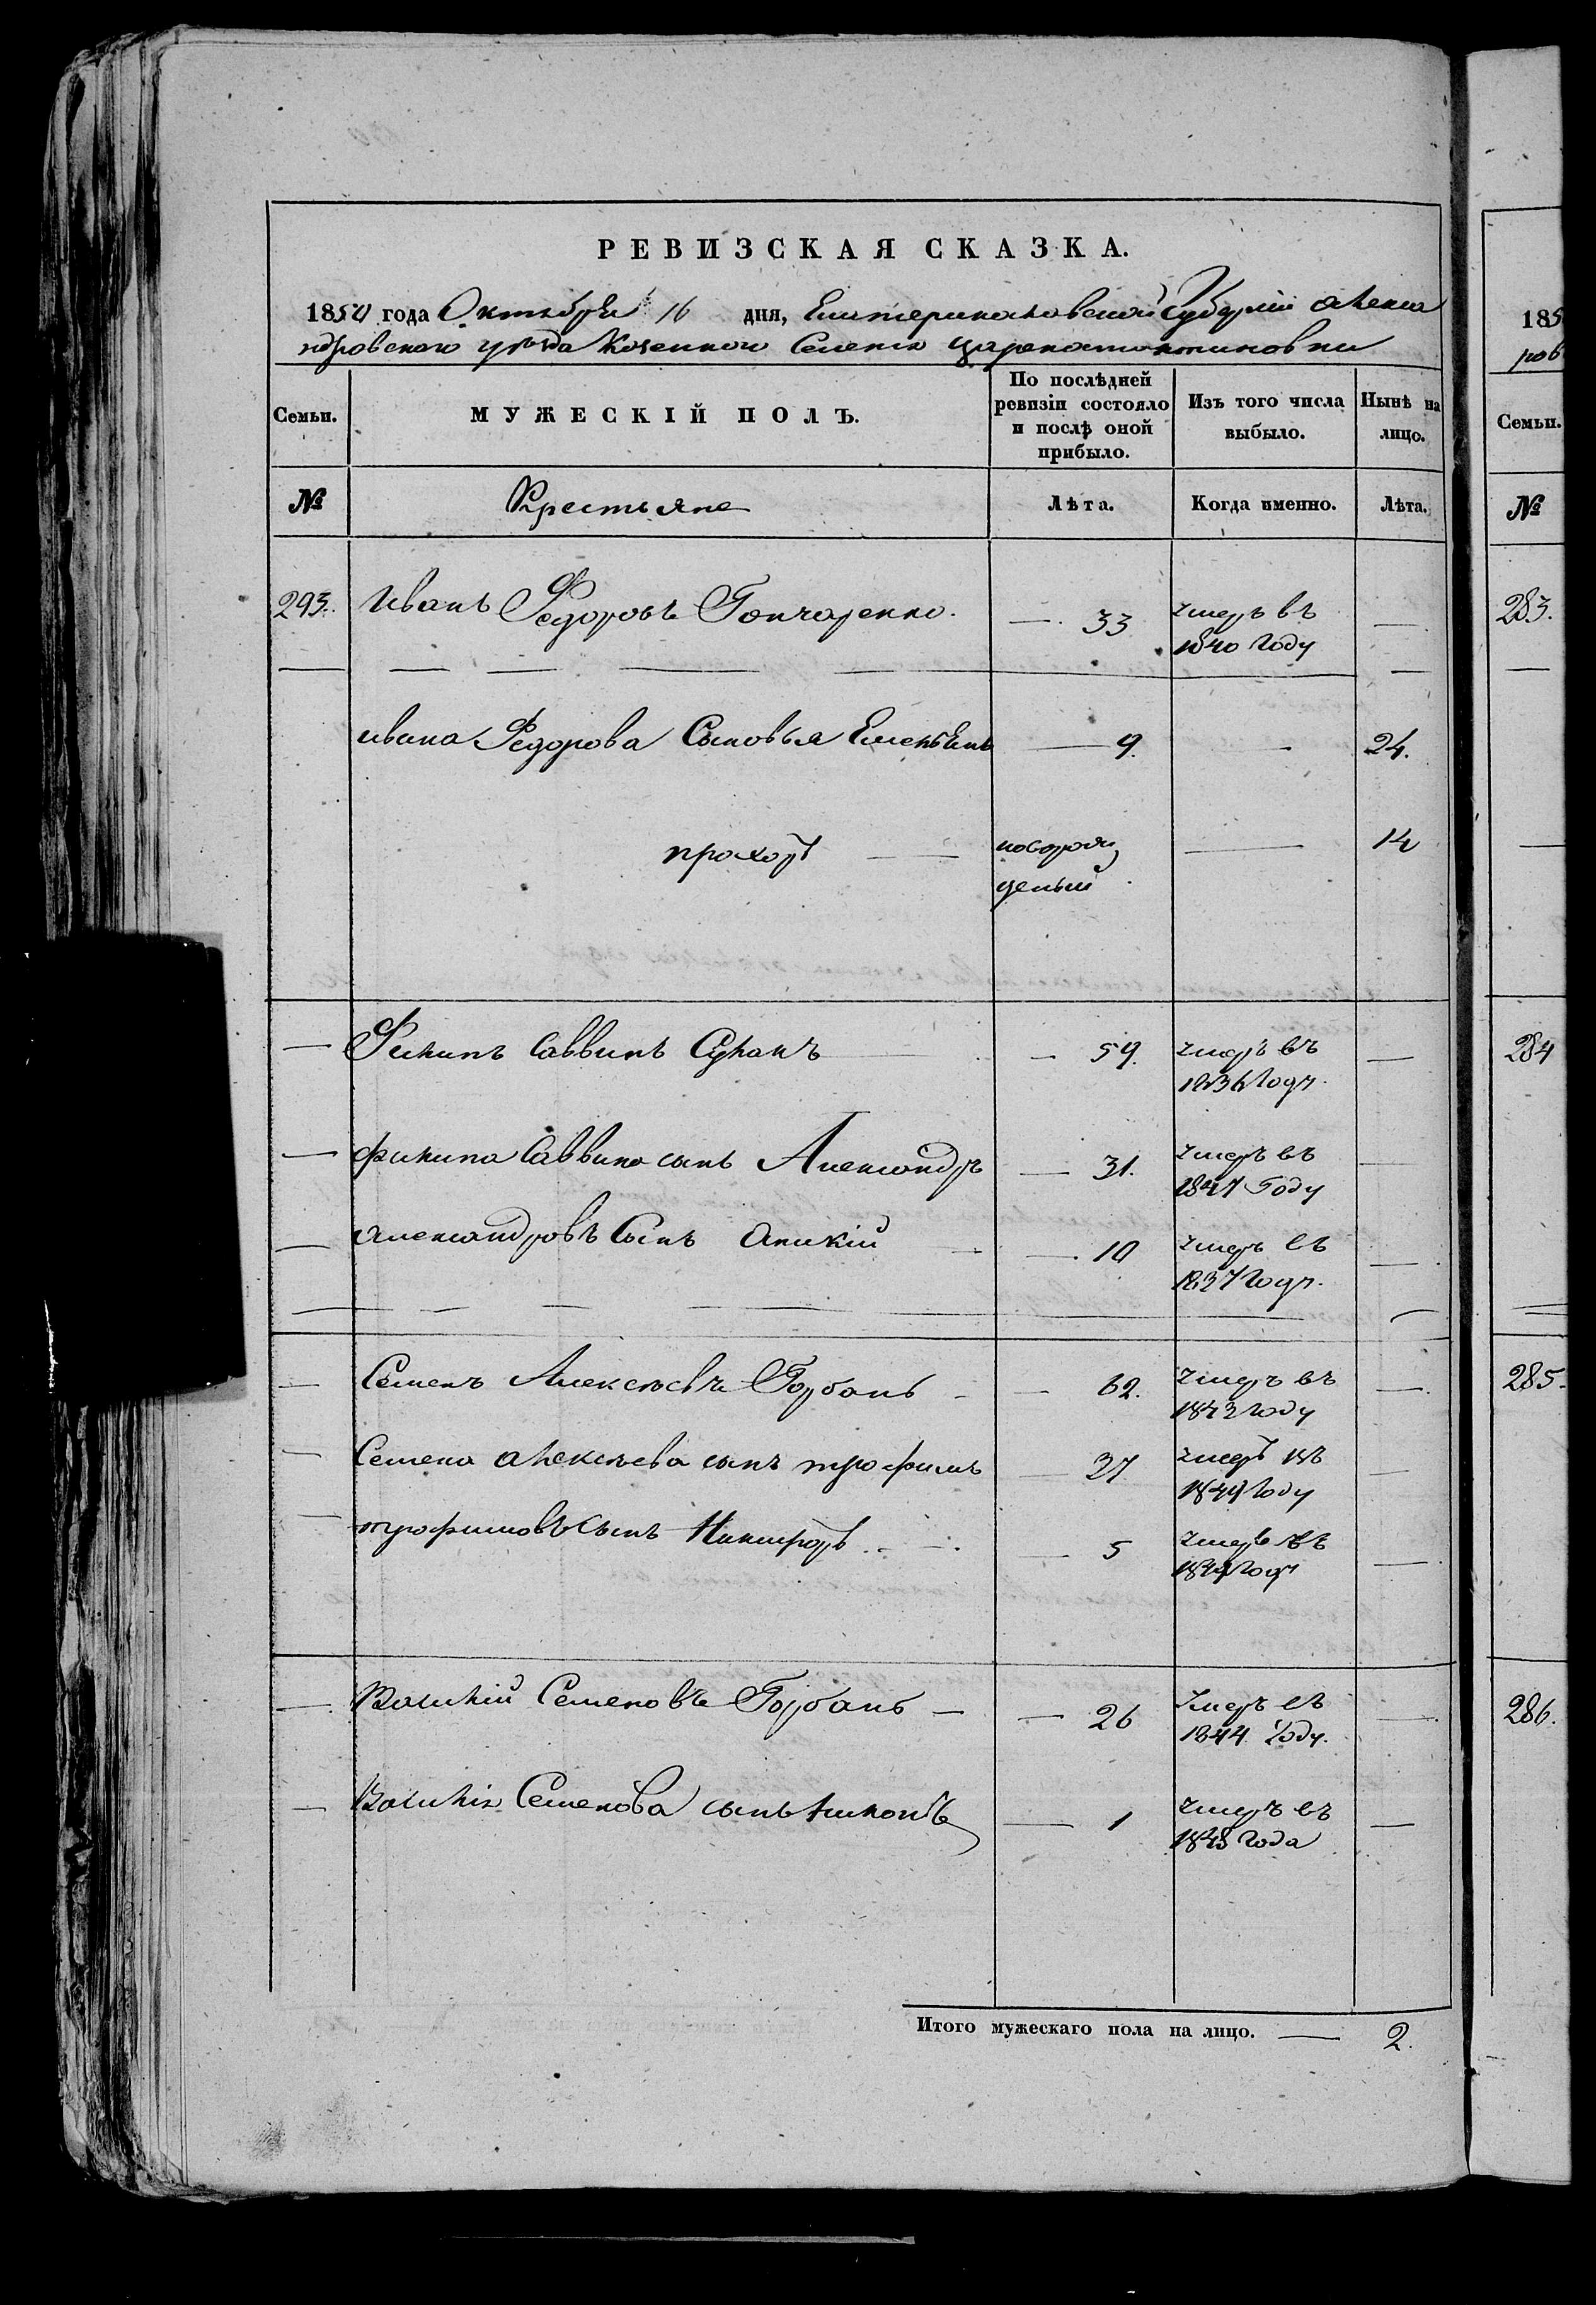 РЕВИЗСКАЯ СКАЗКА.
1850 года Октября 16 дня, Екатеринославской Губерніи Алекса
ндровского уѣзда Козенного Селенія Цареконстантиновки
Семьи. МУЖЕСКІЙ ПОЛЪ. По послѣдней ревизіи состояло и послѣ оной прибыло. Изъ того числа выбыло. Нынѣ на лицо.
№ Крестьяне Лѣта. Когда именно. Лѣта.
293. Иванъ Федоровъ Гончаренко. — 33 умеръ въ —
1840 году
Ивана Федорова Сыновья Емельянъ — 9. — 24.
прохоръ — новорож — 14
деный
— Филипъ Саввинъ — 59. умеръ въ —
1836 году.
— филипа Саввина сынъ Александръ — 31. умеръ въ —
1847 Году
— Александровъ Сынъ Аникій — 10 умеръ въ —
1837 году.
— Семенъ Алексѣевъ Горбань — 62. умеръ въ —
1843 году
— Семена Алексѣева сынъ трофимъ — 27 умеръ въ —
году
— трофимовъ Сынъ — 5 умеръ въ —
году
— Василій Семеновъ Горбань — 26 Умеръ въ —
1844 году.
— Василія Семенова сынъ — 1 умеръ въ —
года
Итого мужескаго пола на лицо. — 2.
185
ров
Семьи.
№
283.
284
285.
286.